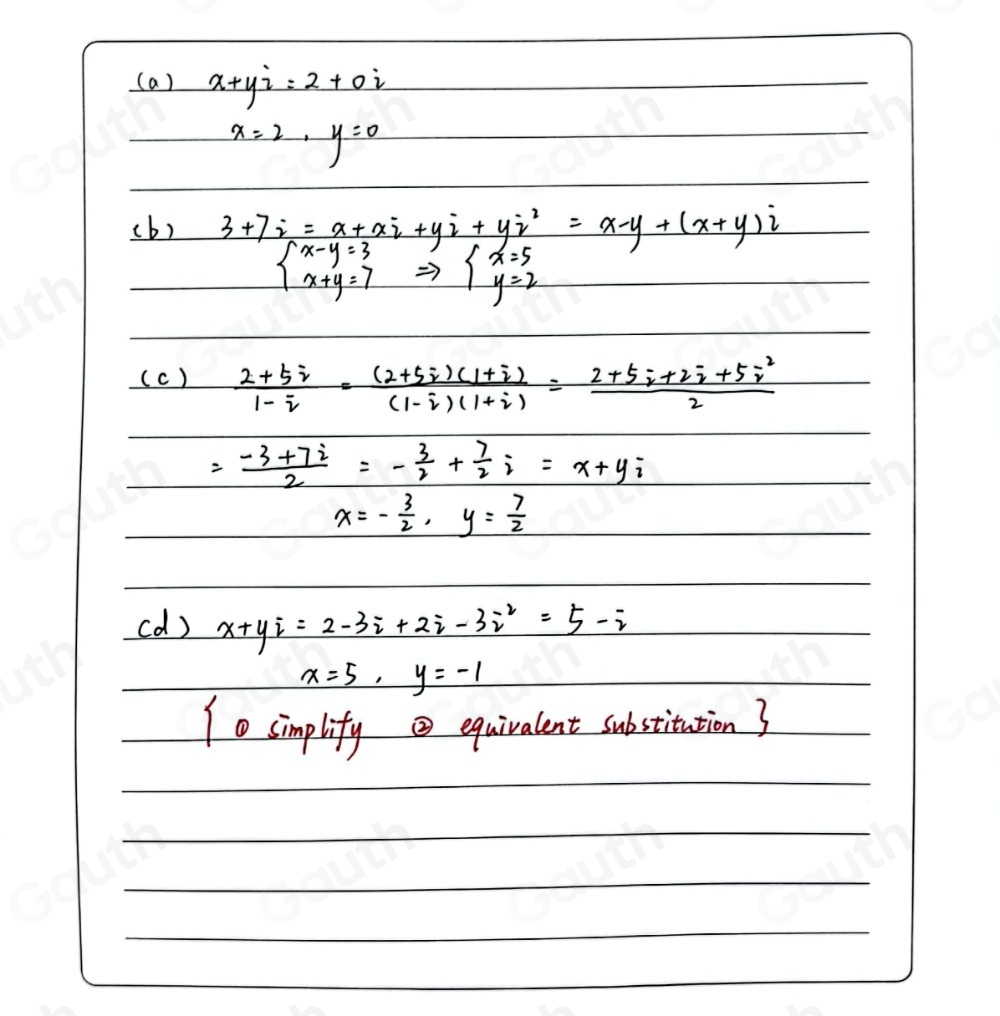 (a) x+yi = 2+0i
x=2, y=0
(b) 3+7i = x+xi+yi+yi² = x-y+(x+y)i
{x-y=3 ⇒ {x=5
x+y=7 y=2
(c) (2+5i)/(1-i) = ((2+5i)(1+i))/((1-i)(1+i)) = (2+5i+2i+5i²)/2
= (-3+7i)/2 = -3/2 + 7/2 i = x+yi
x = -3/2, y = 7/2
(d) x+yi = 2-3i+2i-3i² = 5-i
x=5, y=-1
{① simplify ② equivalent substitution}
Gauth